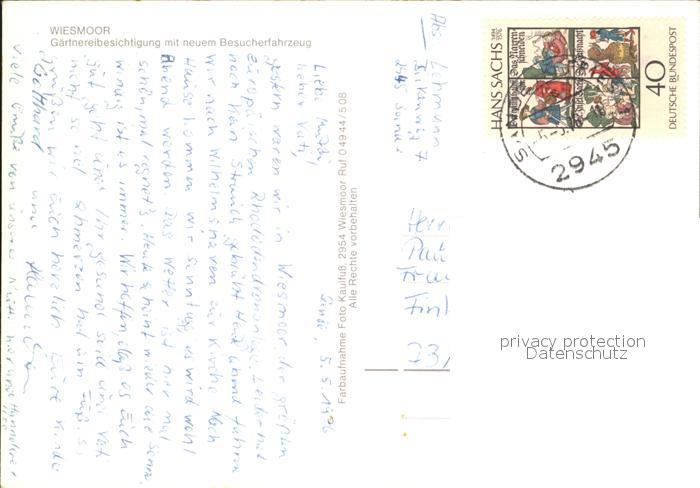 WIESMOOR
Gärtnereibesichtigung mit neuem Besucherfahrzeug
Abs. Lehmann
2945 Sande
HANS SACHS 1494 1576
40
DEUTSCHE BUNDESPOST
2945
Sande, 5. 5. 1976
Liebe Mutti,
lieber Vati,
gestern waren wir in Wiesmoor, der größten
europäischen Leider hat
noch kein Strauch geblüht. Heute Abend fahren
wir nach Wilhelmshaven zur Kirche. Nach
Hause kommen wir Sonntag, es wird wohl
Abend werden. Das Wetter ist nur mal
schön, mal regnet's. Heute scheint wieder die Sonne,
windig ist es immer. Wir hoffen, daß es Euch
gut geht und Ihr gesund seid und Vati
nicht so viel Schmerzen hat im Fuß. So
grüßen wir Euch herzlich Eure Kinder
und
Viele Grüße von unserer
Farbaufnahme Foto Kaulfuß, 2954 Wiesmoor Ruf 04944/508
Alle Rechte vorbehalten
Herr
Pau
Frau
Fin
23
privacy protection
Datenschutz